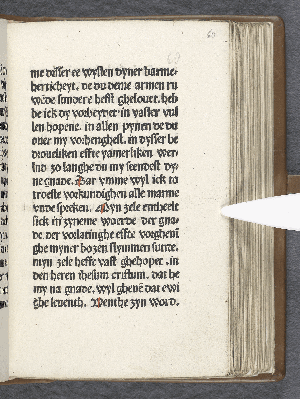 60
me desser ee wyllen dyner barme-
herticheyt. de du dene armen ru
wēde sundere hefst ghelouet. heb
be ick dy vorbeydet in vaster vul
len hopene. in allen pynen de du
ouer my vorhenghest. in dysser be
droueliken effte yamerliken wer-
lnd so langhe du my leendest dy-
ne gnade. Dar vmme wyl ick to
troeste vorkundighen alle manne
vnde spreken. Myn zele entheelt
sick in synem woerde der gna-
de. der vorlatinghe effte vorgheni
ghe myner bozen slymmen sunde.
myn zele heffe vast ghehopet. in
den heren ihesum cristum. dat he
my na gnade. wyl gheuē dat ewi
ghe leuenth. Wenthe zyn word.